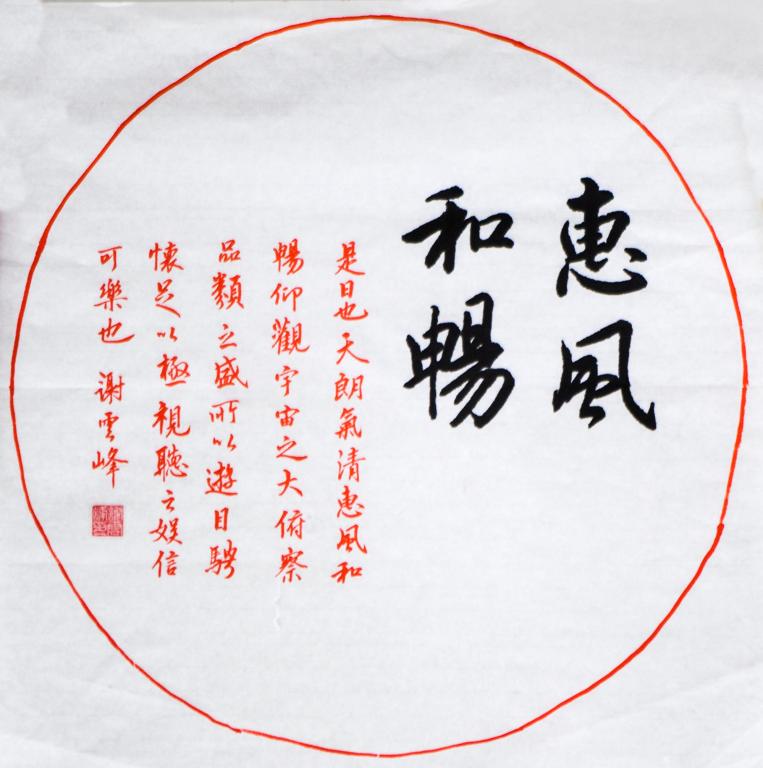 惠風
和暢
是日也天朗氣清惠風和
暢仰觀宇宙之大俯察
品類之盛所以遊目騁
懷足以極視聽之娱信
可樂也 谢雲峰